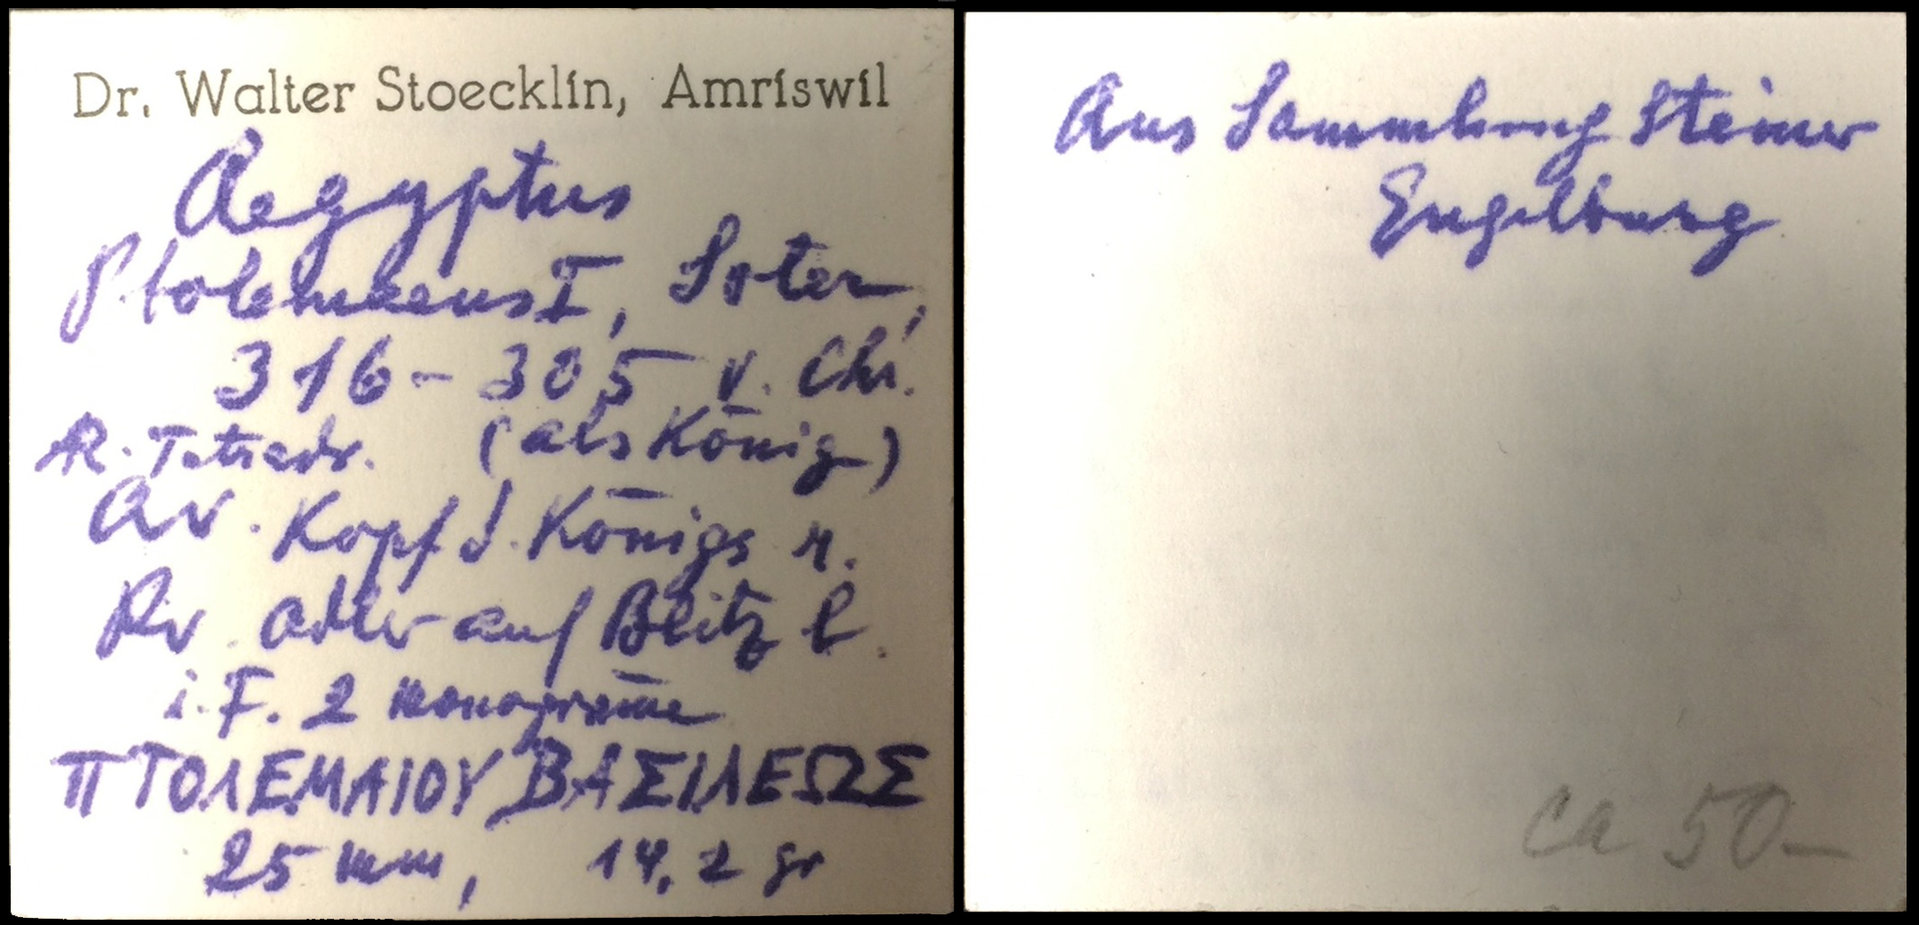 Dr. Walter Stoecklin, Amriswil
Aegyptus
Ptolemaeus I, Soter,
316 - 305 v. Chr.
AR. Tetradr. (als König)
Av. Kopf d. Königs r.
Rv. Adler auf Blitz l.
i. F. 2 Monograme
ΠΤΟΛΕΜΑΙΟΥ ΒΑΣΙΛΕΩΣ
25 mm, 14,2 gr
Aus Sammlung Steiner
Engelburg
ca 50.-